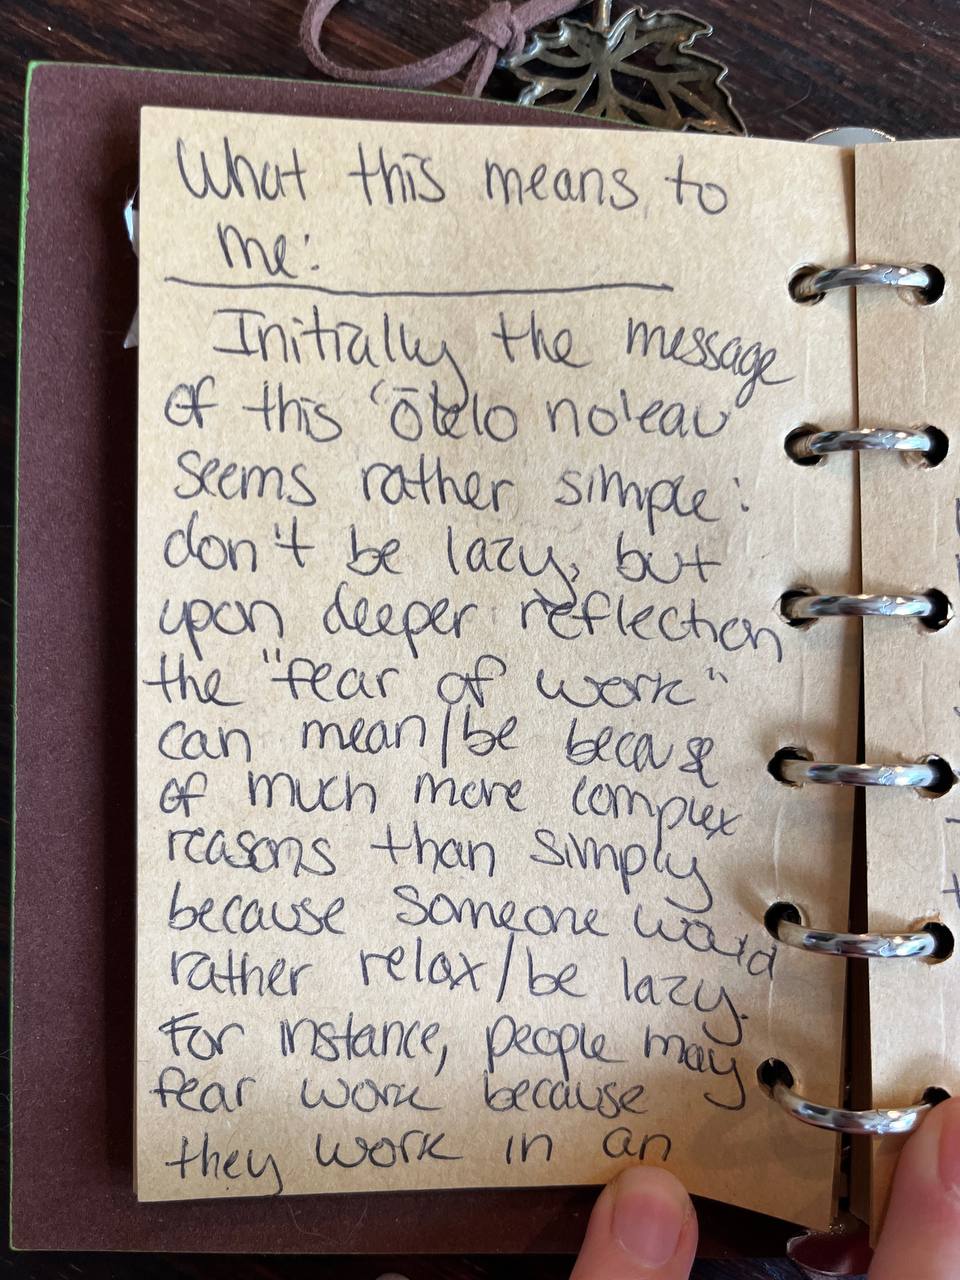 What this means to
me:
Initially the message
of this 'ōlelo no'eau
seems rather simple:
don't be lazy, but
upon deeper reflection
the "fear of work"
can mean/be because
of much more complex
reasons than simply
because someone would
rather relax/be lazy.
For instance, people may
fear work because
they work in an